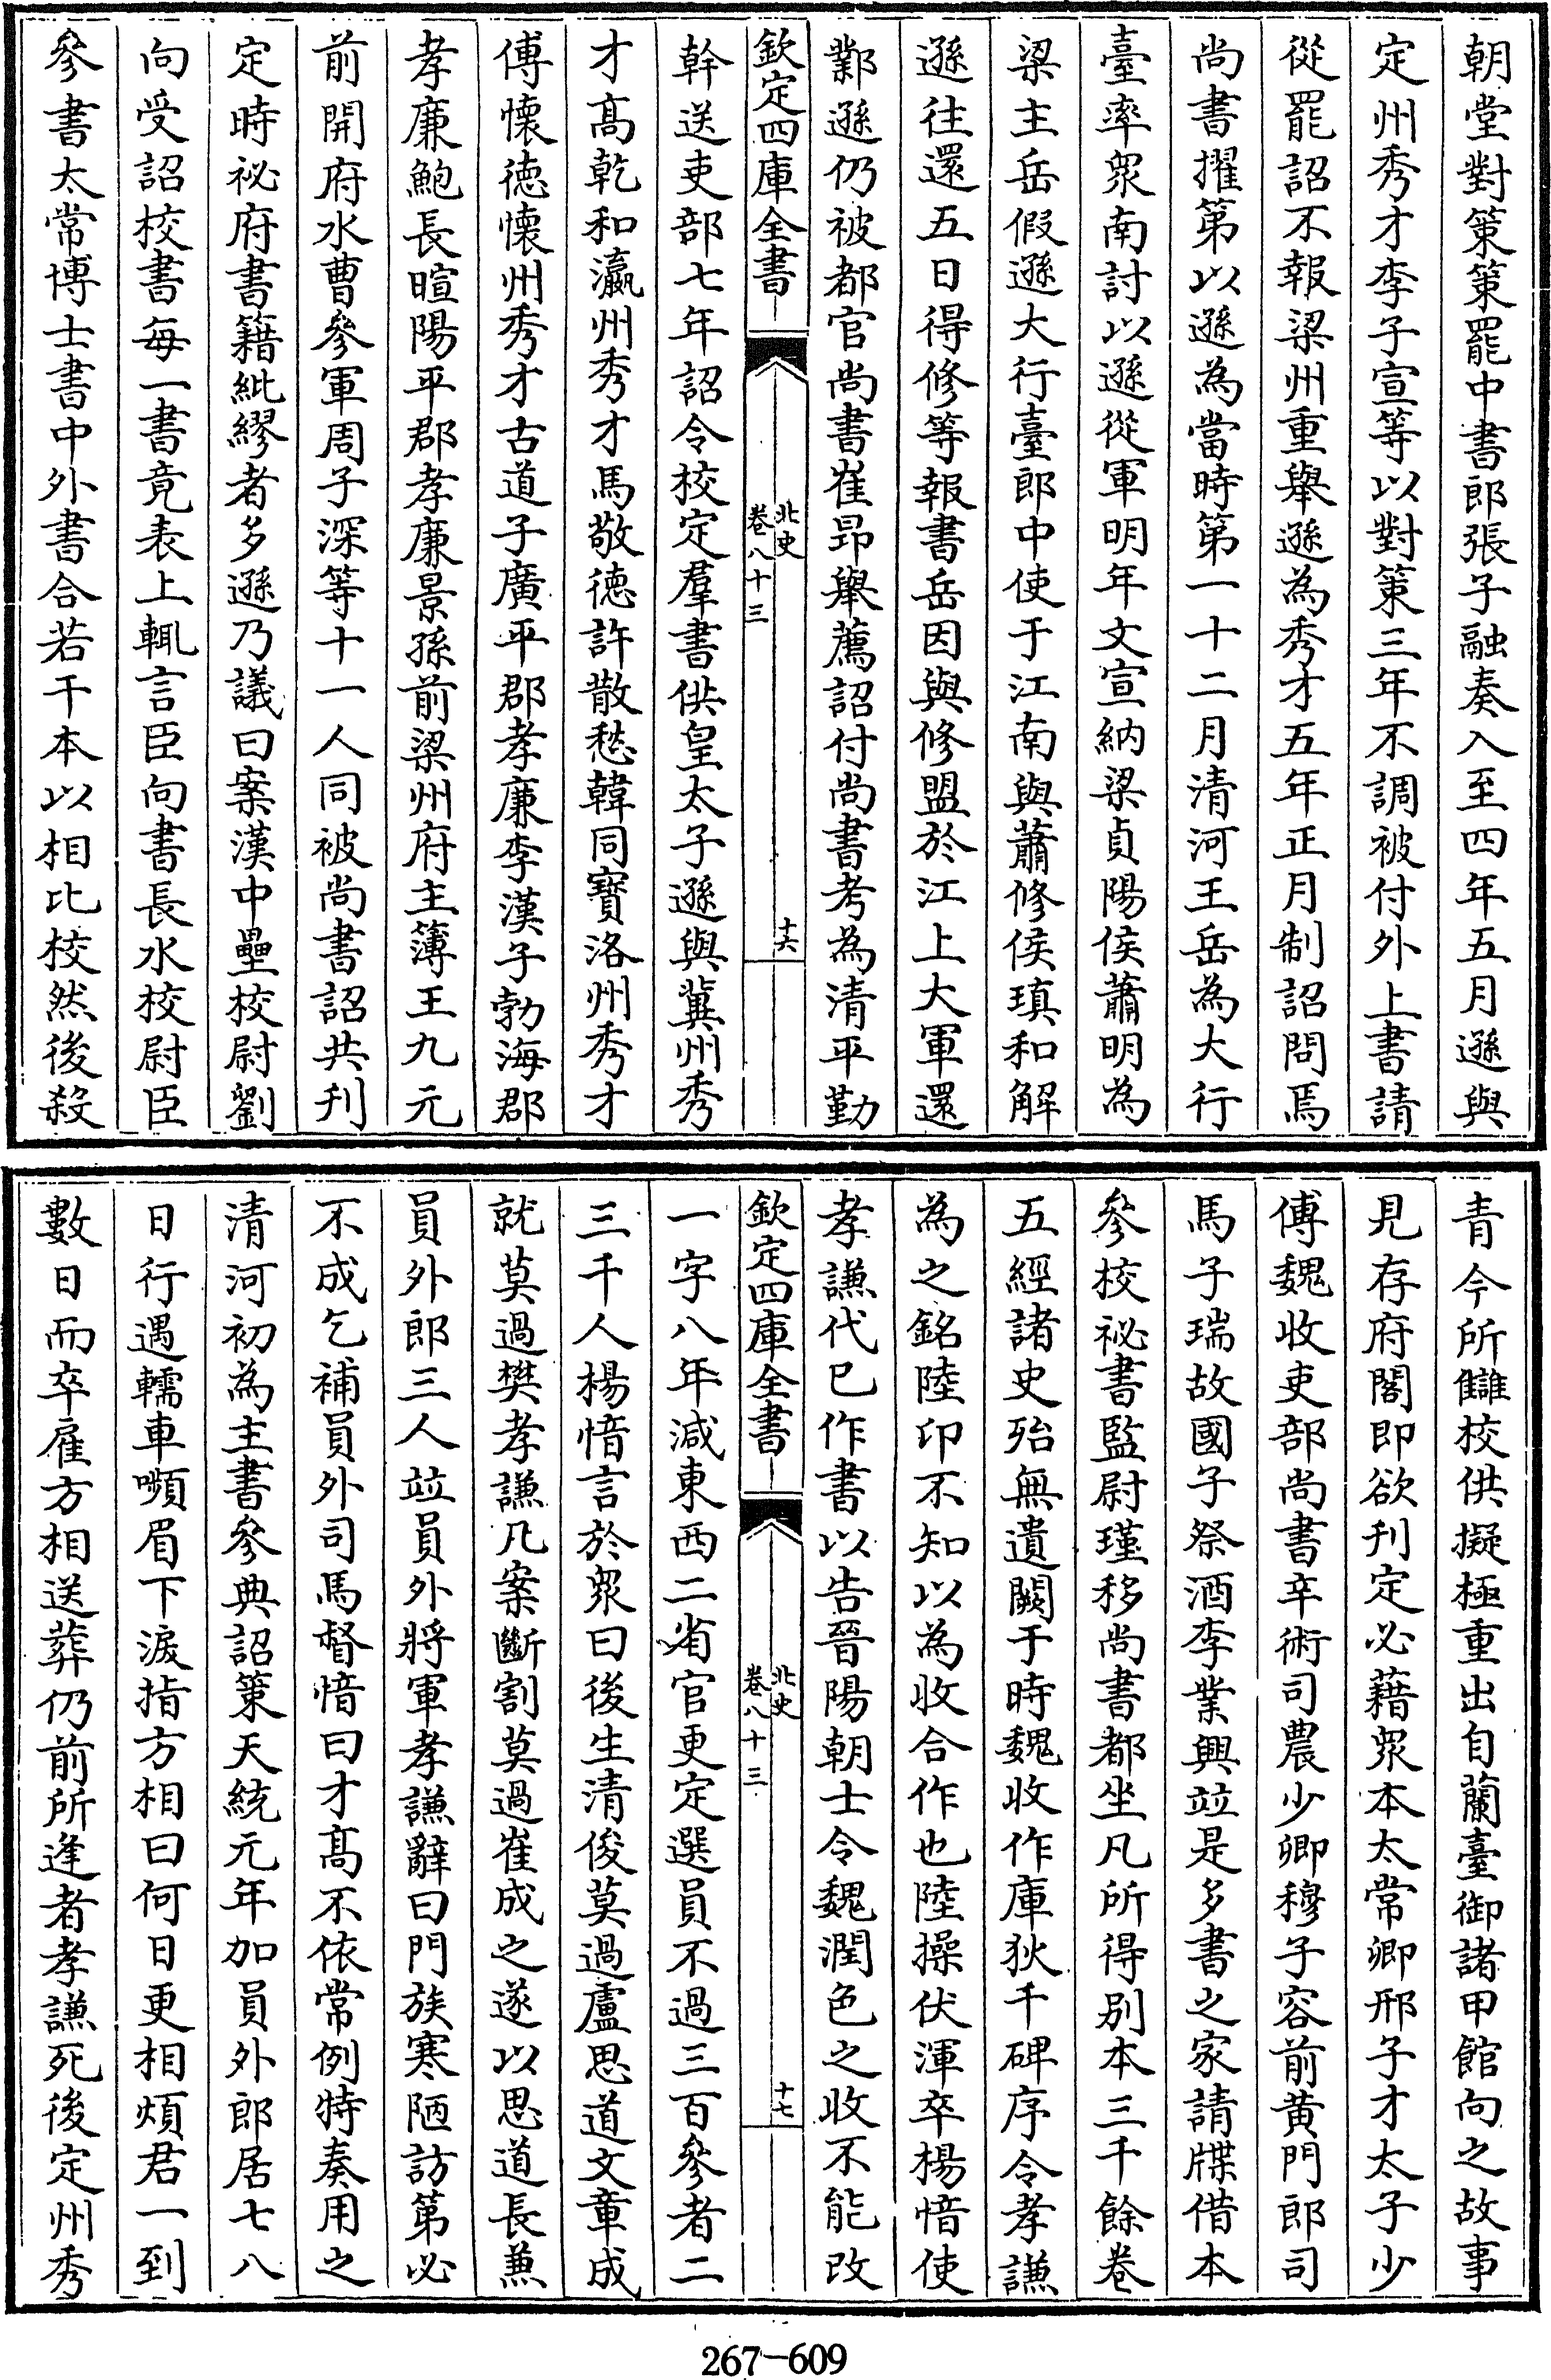 朝堂對策策罷中書郎張子融奏入至四年五月遜與
定州秀才李子宣等以對策三年不調被付外上書請
從罷詔不報梁州重舉遜為秀才五年正月制詔問焉
尚書擢第以遜為當時第一十二月清河王岳為大行
臺率衆南討以遜從軍明年文宣納梁貞陽侯蕭明為
梁主岳假遜大行臺郎中使于江南與蕭修侯瑱和解
遜往還五日得修等報書岳因與修盟於江上大軍還
鄴遜仍被都官尚書崔昻舉薦詔付尚書考為清平勤
欽定四庫全書
北史
卷八十三
十六
幹送吏部七年詔令校定羣書供皇太子遜與冀州秀
才髙乾和瀛州秀才馬敬徳許散愁韓同寳洛州秀才
傅懷徳懷州秀才古道子廣平郡孝廉李漢子勃海郡
孝廉鮑長暄陽平郡孝廉景孫前梁州府主簿王九元
前開府水曹參軍周子深等十一人同被尚書詔共刋
定時祕府書籍紕繆者多遜乃議曰案漢中壘校尉劉
向受詔校書每一書竟表上輒言臣向書長水校尉臣
參書太常博士書中外書合若干本以相比校然後殺
青今所讎校供擬極重出自蘭臺御諸甲館向之故事
見存府閣即欲刋定必藉衆本太常卿邢子才太子少
傅魏收吏部尚書辛術司農少卿穆子容前黄門郎司
馬子瑞故國子祭酒李業興竝是多書之家請牒借本
參校祕書監尉瑾移尚書都坐凡所得别本三千餘卷
五經諸史殆無遺闕于時魏收作庫狄干碑序令孝謙
為之銘陸卬不知以為收合作也陸操伏渾卒楊愔使
孝謙代已作書以告晉陽朝士令魏潤色之收不能改
欽定四庫全書
北史
卷八十三
十七
一字八年減東西二省官更定選員不過三百參者二
三千人楊愔言於衆曰後生清俊莫過盧思道文章成
就莫過樊孝謙凡案斷割莫過崔成之遂以思道長兼
員外郎三人竝員外將軍孝謙辭曰門族寒陋訪第必
不成乞補員外司馬督愔曰才髙不依常例特奏用之
清河初為主書參典詔策天統元年加員外郎居七八
日行遇轜車嚬眉下淚指方相曰何日更相煩君一到
數日而卒雇方相送葬仍前所逢者孝謙死後定州秀
267-609